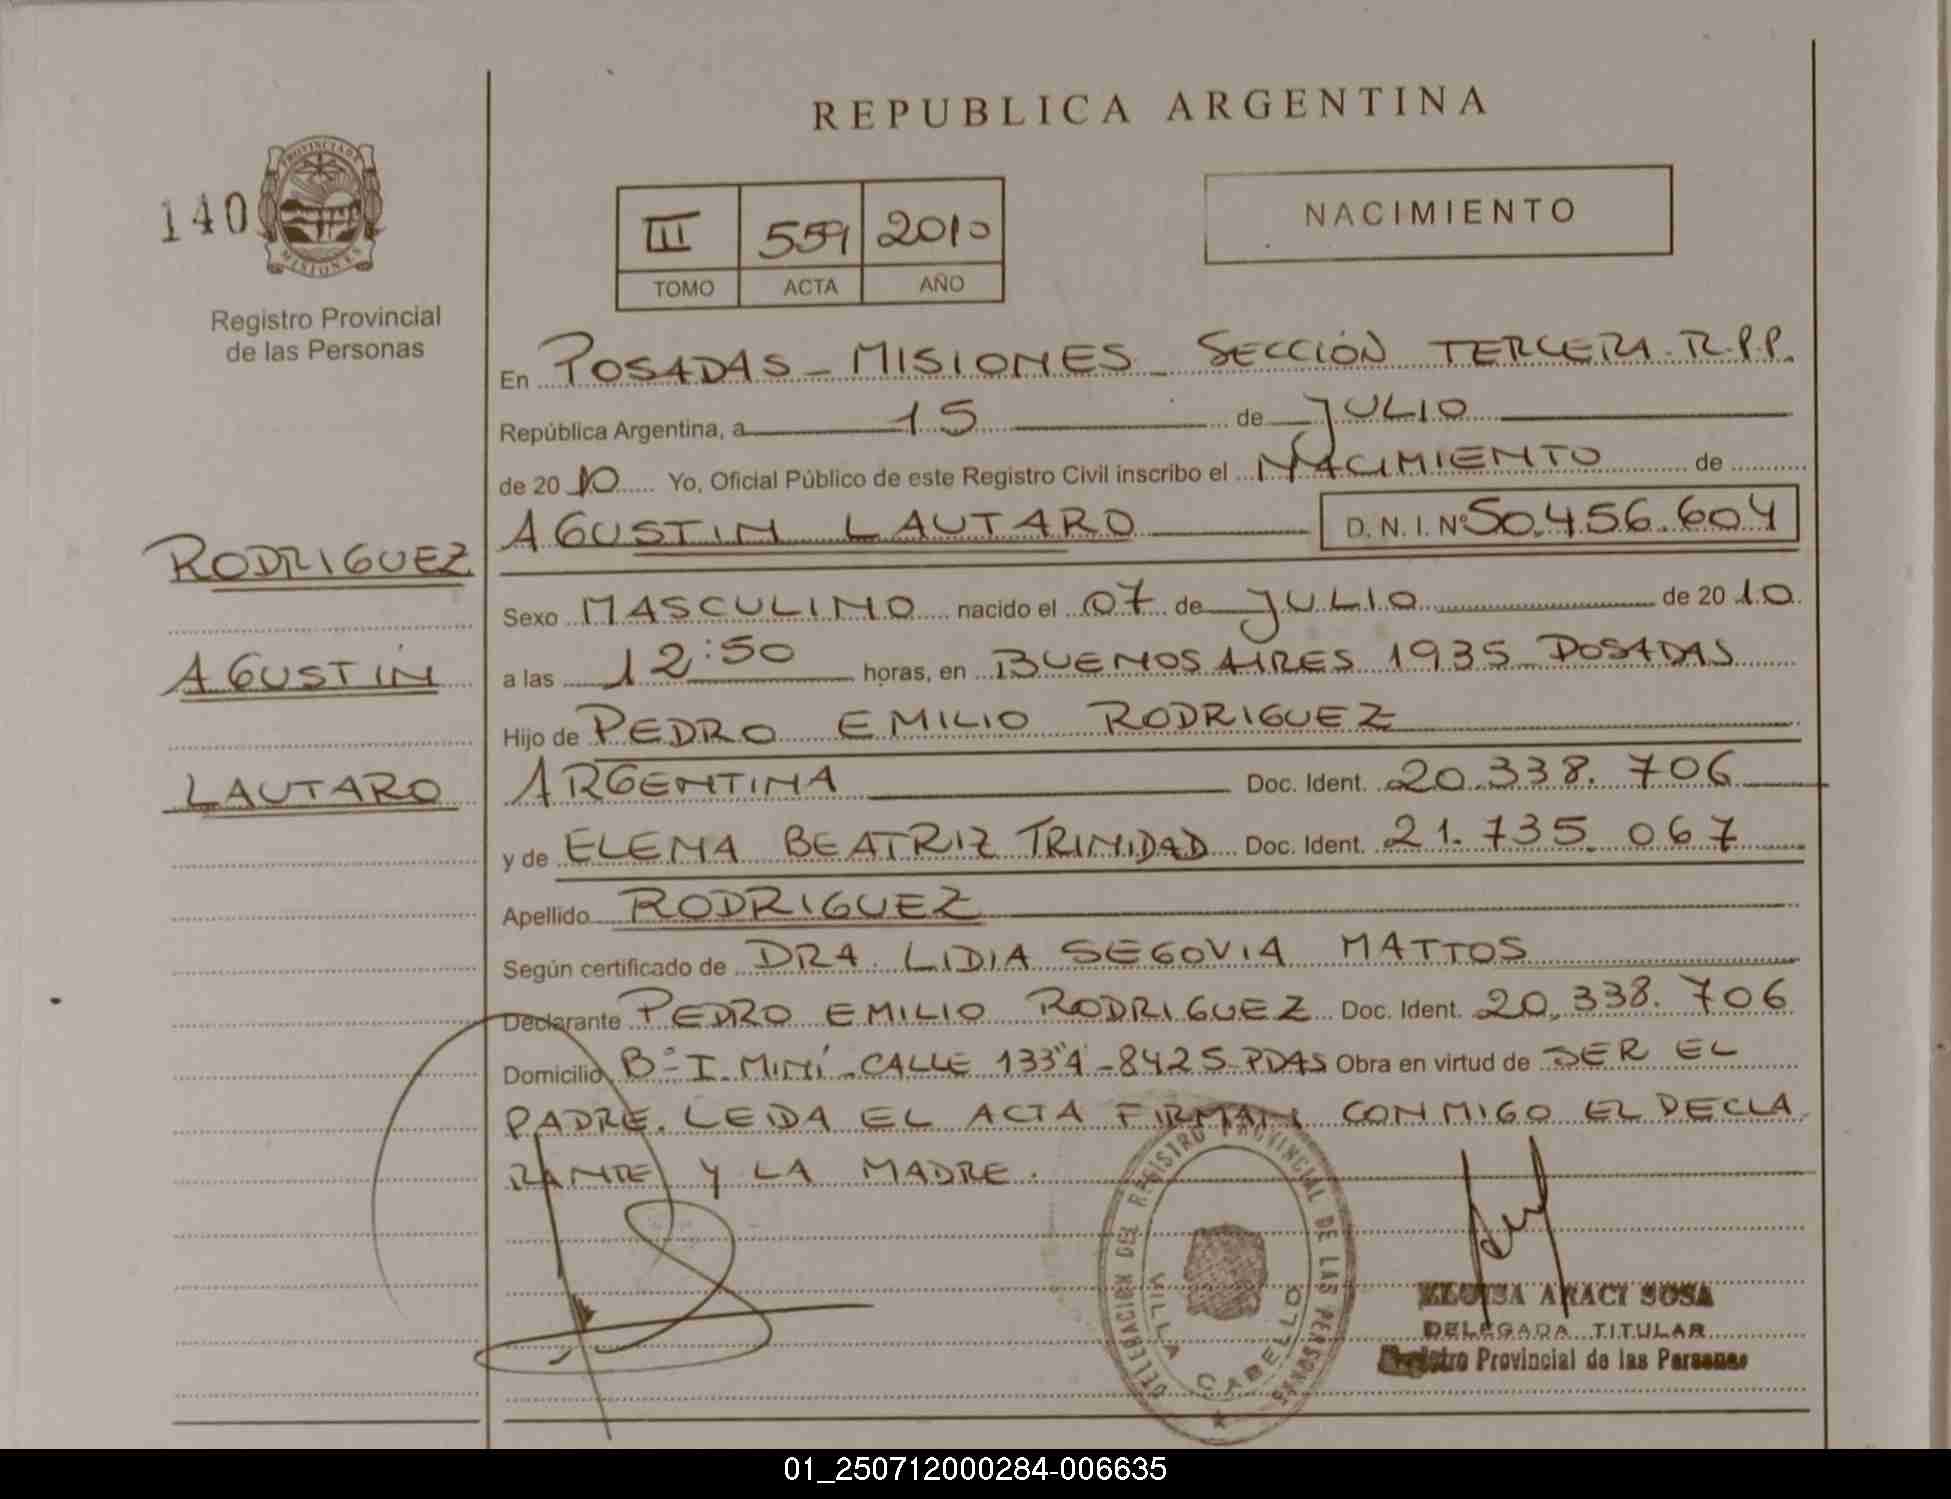 REPUBLICA ARGENTINA
140
PROVINCIA DE
MISIONES
Registro Provincial
de las Personas
III 559 2010
TOMO ACTA AÑO
NACIMIENTO
En POSADAS - MISIONES - SECCIÓN TERCERA. R.P.P.
República Argentina, a 15 de JULIO
de 2010 Yo, Oficial Público de este Registro Civil inscribo el NACIMIENTO de
AGUSTIN LAUTARO D. N. I. Nº 50.456.604
RODRIGUEZ
AGUSTIN
LAUTARO
Sexo MASCULINO nacido el 07 de JULIO de 2010
a las 12:50 horas, en BUENOS AIRES 1935 POSADAS
Hijo de PEDRO EMILIO RODRIGUEZ
ARGENTINA Doc. Ident. 20.338.706
y de ELENA BEATRIZ TRINIDAD Doc. Ident. 21.735.067
Apellido RODRIGUEZ
Según certificado de DRA. LIDIA SEGOVIA MATTOS
Declarante PEDRO EMILIO RODRIGUEZ Doc. Ident. 20.338.706
Domicilio Bº I. MINÍ - CALLE 133"A" - 8425 - PDAS Obra en virtud de SER EL
PADRE. LEIDA EL ACTA FIRMAN CONMIGO EL DECLA
RANTE Y LA MADRE.
DELEGACION DEL REGISTRO PROVINCIAL DE LAS PERSONAS
VILLA CABELLO
ELOISA ARACI SOSA
DELEGADA TITULAR
Registro Provincial de las Personas
01_250712000284-006635